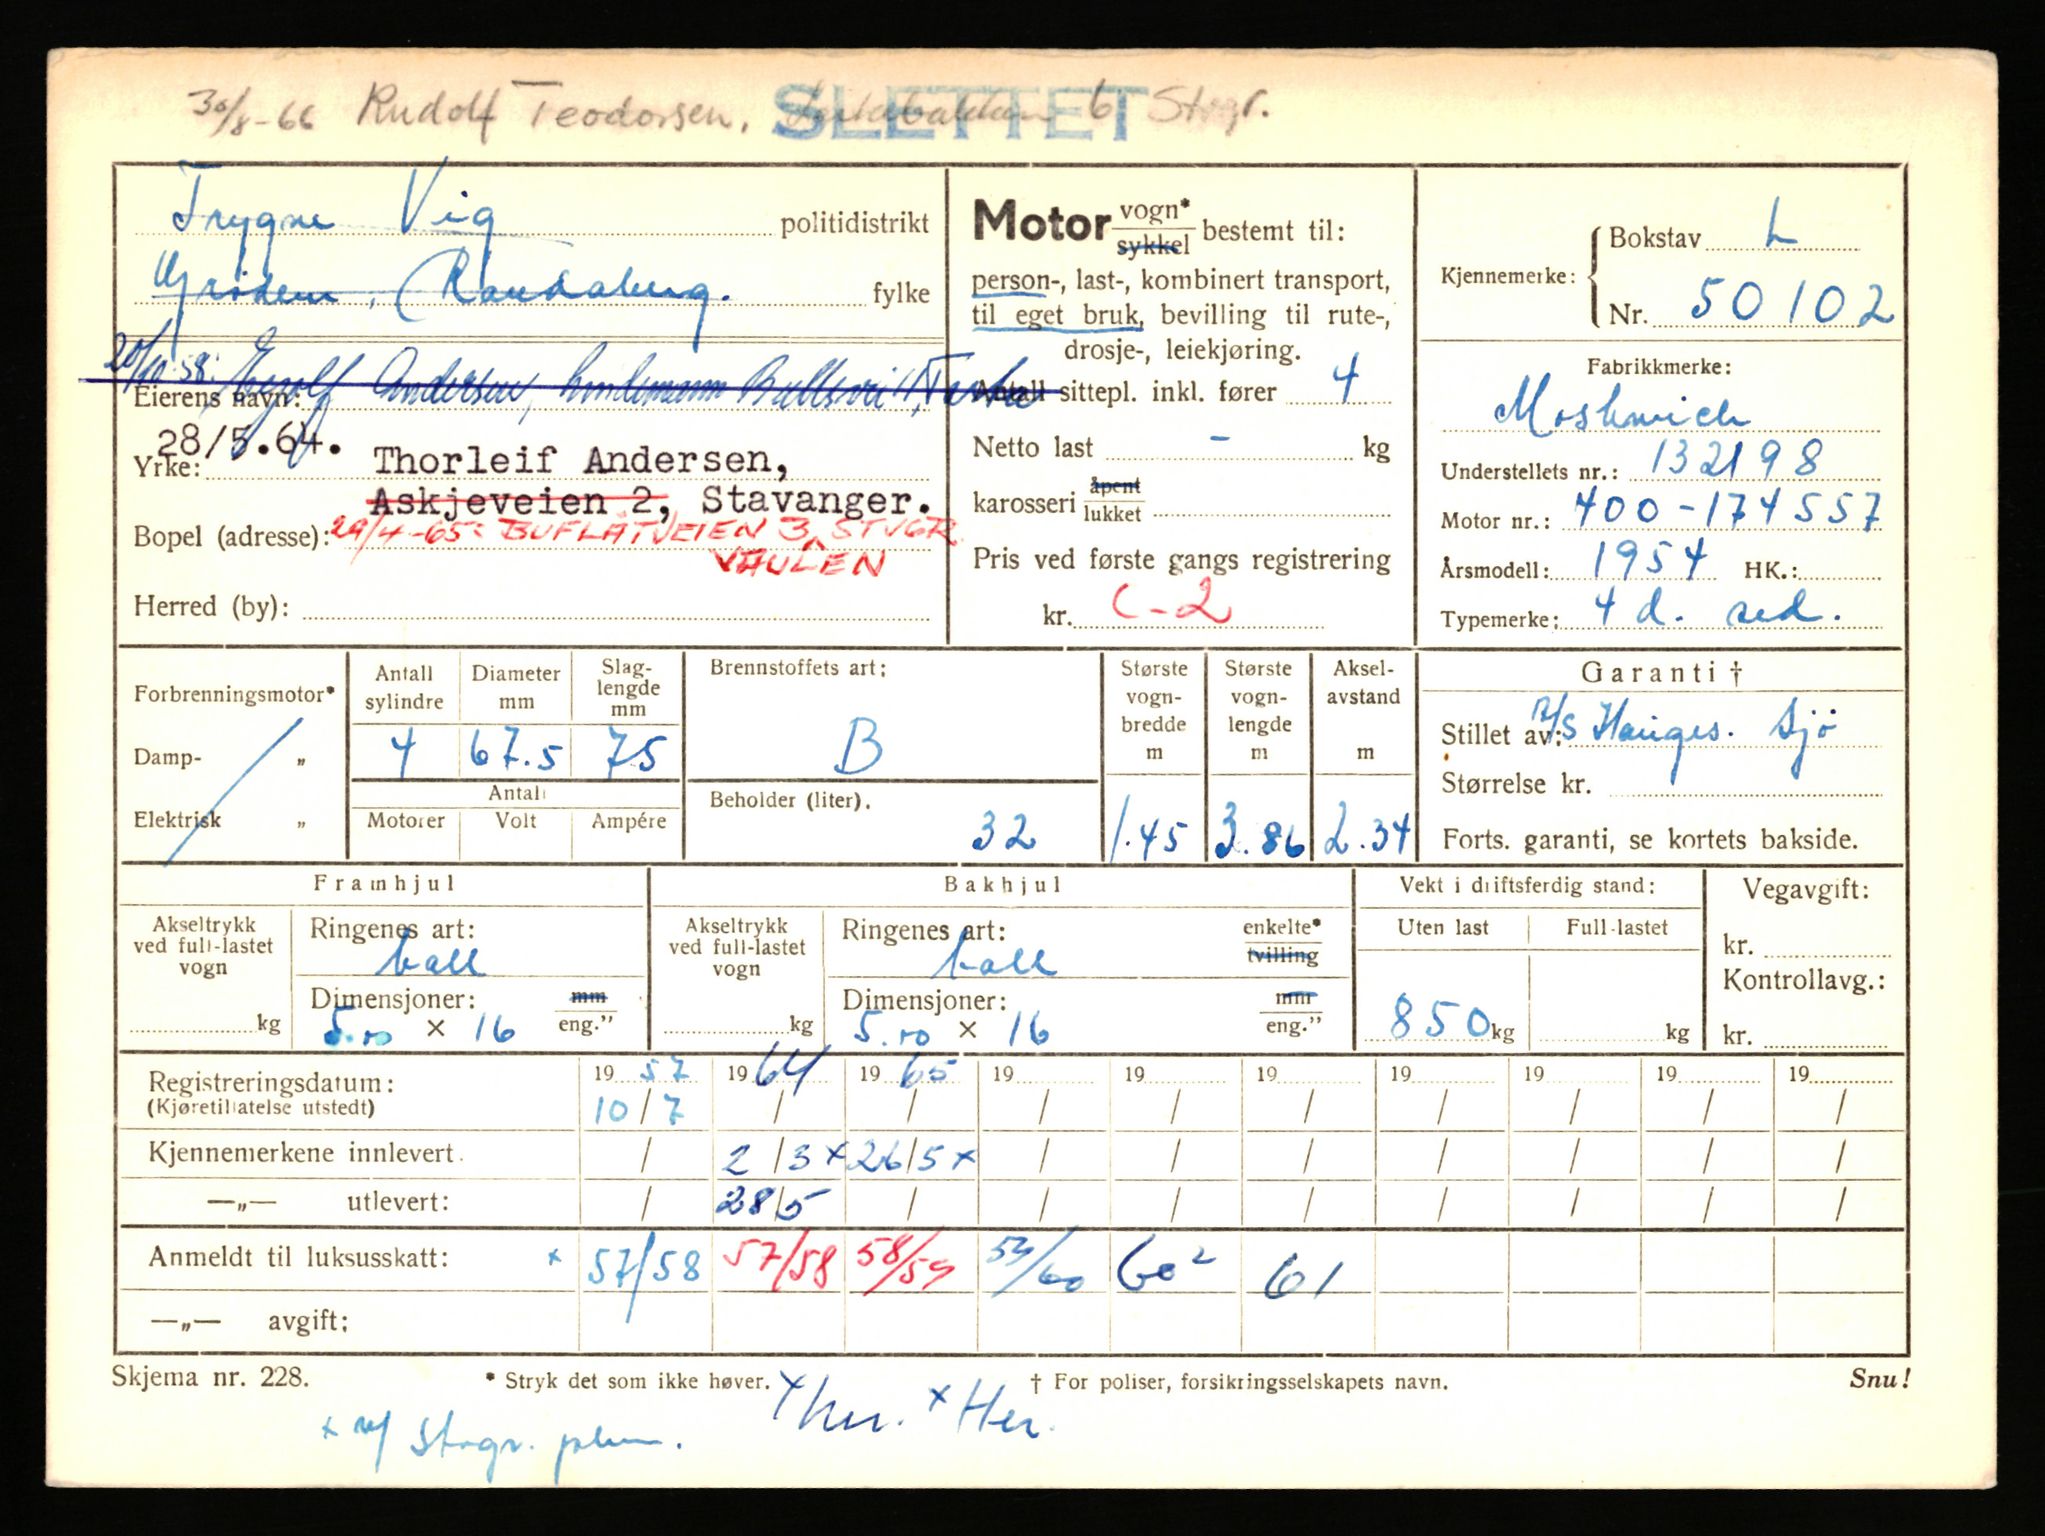 30/8-66 Rudolf Teodorsen, 6 Stvgr.
SLETTET
Trygve Vig politidistrikt
Grødem, Randaberg. fylke
20/10 58: Andersen,
Eierens navn:
28/5.64. Thorleif Andersen,
Yrke:
Askjeveien 2, Stavanger.
Bopel (adresse): 29/4-65: BUFLÅTVEIEN 3, STVGR
VAULEN
Herred (by):
Motor vogn* sykkel bestemt til:
person-, last-, kombinert transport,
til eget bruk, bevilling til rute-,
drosje-, leiekjøring.
Antall sittepl. inkl. fører 4
Netto last - kg
karosseri åpent lukket
Pris ved første gangs registrering
kr. C-2
Kjennemerke: Bokstav L
Nr. 50102
Fabrikkmerke:
Moskvich
Understellets nr.: 132198
Motor nr.: 400-174557
Årsmodell: 1954 HK.:
Typemerke: 4 d. sed.
Forbrenningsmotor*
Damp- „
Elektrisk „
Antall sylindre Diameter mm Slag-lengde mm
4 67.5 75
Antall
Motorer Volt Ampére
Brennstoffets art:
B
Beholder (liter).
32
Største vogn-bredde m
1.45
Største vogn-lengde m
3.86
Aksel-avstand m
2.34
Garanti †
Stillet av: A/S Hauges. Sjø
Størrelse kr.
Forts. garanti, se kortets bakside.
Framhjul
Akseltrykk ved full-lastet vogn
kg
Ringenes art:
ball
Dimensjoner: mm
5.00 × 16 eng."
Bakhjul
Akseltrykk ved full-lastet vogn
kg
Ringenes art: enkelte*
ball tvilling
Dimensjoner: mm
5.00 × 16 eng."
Vekt i driftsferdig stand:
Uten last Full-lastet
850 kg kg
Vegavgift:
kr.
Kontrollavg.:
kr.
Registreringsdatum: 19 57 19 64 19 65 19 19 19 19 19 19 19
(Kjøretillatelse utstedt) 10/7 / / / / / / / / /
Kjennemerkene innlevert. / 2/3 x 26/5 x / / / / / / /
—„— utlevert: / 28/5 / / / / / / / /
Anmeldt til luksusskatt: x 57/58 57/58 58/59 59/60 60² 61
—„— avgift:
Skjema nr. 228. * Stryk det som ikke høver. † For poliser, forsikringsselskapets navn. Snu!
x Her. x Her.
x v/ Stvgr. polkm.